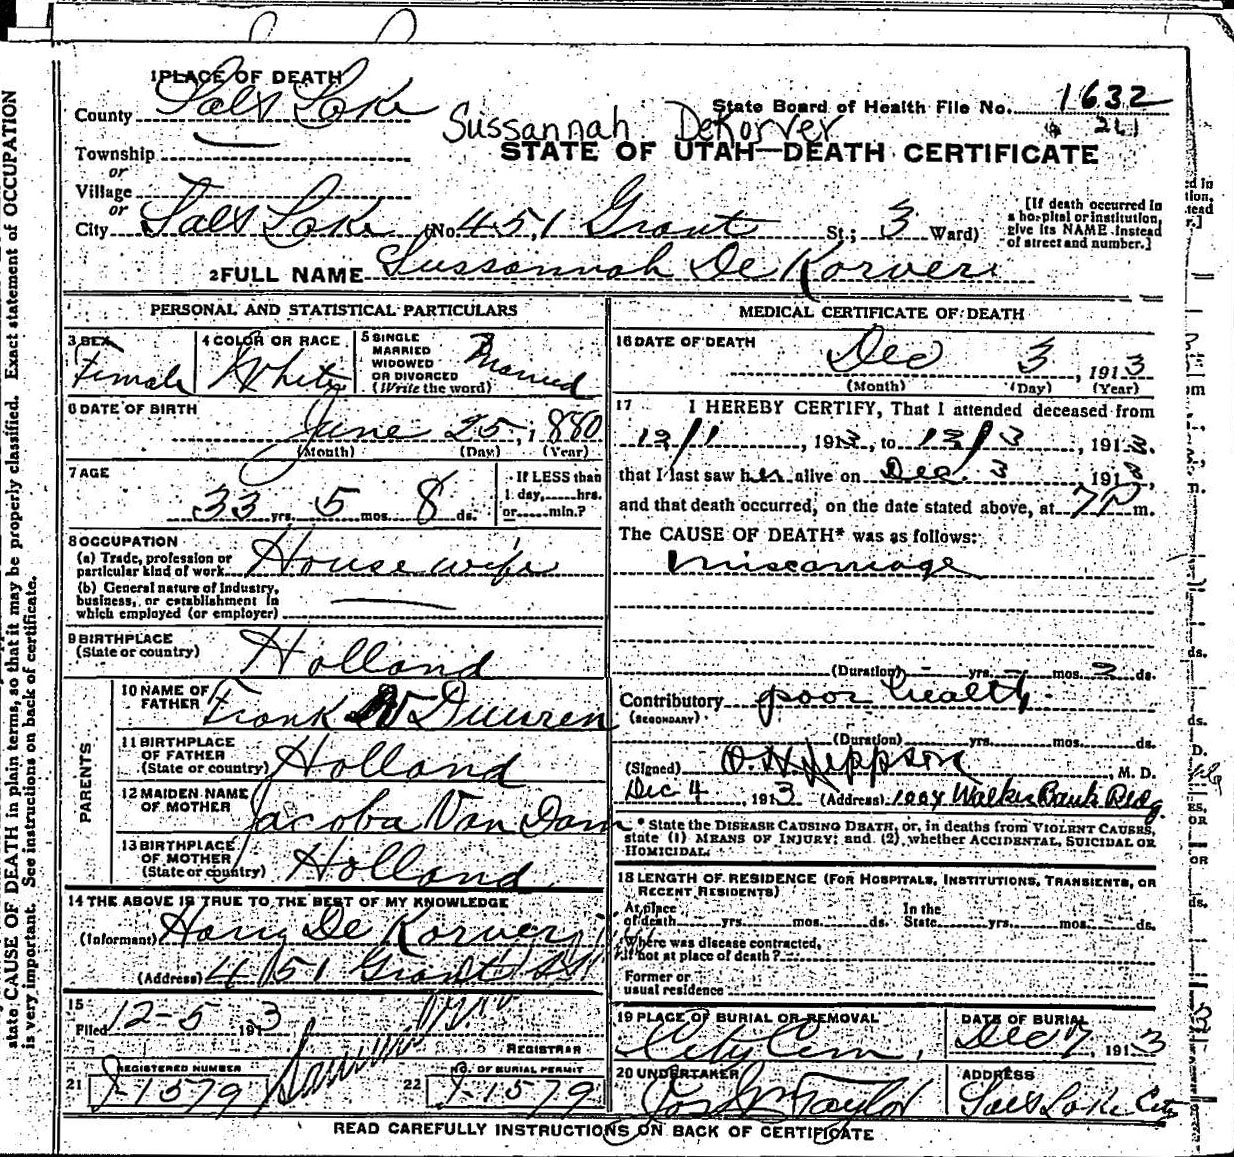 1 PLACE OF DEATH
County Salt Lake
State Board of Health File No. 1632
Sussannah DeKorver
261
Township
STATE OF UTAH—DEATH CERTIFICATE
or
Village
or
City Salt Lake (No. 451 Grant St.; 3 Ward)
[If death occurred in
a hospital or institution,
give its NAME instead
of street and number.]
2 FULL NAME Sussannah De Korver
PERSONAL AND STATISTICAL PARTICULARS
3 SEX
Female
4 COLOR OR RACE
White
5 SINGLE
MARRIED
WIDOWED
OR DIVORCED
(Write the word)
Married
6 DATE OF BIRTH
June 25, 1880
(Month) (Day) (Year)
7 AGE
33 yrs. 5 mos. 8 ds.
If LESS than
1 day,......hrs.
or......min.?
8 OCCUPATION
(a) Trade, profession or
particular kind of work House wife
(b) General nature of industry,
business, or establishment in
which employed (or employer)
9 BIRTHPLACE
(State or country)
Holland
PARENTS
10 NAME OF
FATHER
Frank Duuren
11 BIRTHPLACE
OF FATHER
(State or country) Holland
12 MAIDEN NAME
OF MOTHER
Jacoba Van Dam
13 BIRTHPLACE
OF MOTHER
(State or country) Holland
14 THE ABOVE IS TRUE TO THE BEST OF MY KNOWLEDGE
(Informant) Harry De Korver
(Address) 451 Grant St
15
Filed 12-5 1913
REGISTRAR
REGISTERED NUMBER
21 J-1579
NO. OF BURIAL PERMIT
22 J-1579
MEDICAL CERTIFICATE OF DEATH
16 DATE OF DEATH
Dec 3, 1913
(Month) (Day) (Year)
17 I HEREBY CERTIFY, That I attended deceased from
12/1, 1913, to 12/3, 1913.
that I last saw her alive on Dec. 3 1913,
and that death occurred, on the date stated above, at 7 P m.
The CAUSE OF DEATH* was as follows:
Miscarriage
(Duration) - yrs. - mos. 2 ds.
Contributory poor health.
(SECONDARY)
(Duration) yrs. mos. ds.
(Signed) O. H. Jeppson, M. D.
Dec 4, 1913 (Address) 1004 Walker Bank Bldg.
* State the DISEASE CAUSING DEATH, or, in deaths from VIOLENT CAUSES,
state (1) MEANS OF INJURY; and (2) whether ACCIDENTAL, SUICIDAL OR
HOMICIDAL.
18 LENGTH OF RESIDENCE (FOR HOSPITALS, INSTITUTIONS, TRANSIENTS, OR
RECENT RESIDENTS)
At place In the
of death yrs. mos. ds. State yrs. mos. ds.
Where was disease contracted,
if not at place of death?
Former or
usual residence
19 PLACE OF BURIAL OR REMOVAL
City Cem.
DATE OF BURIAL
Dec 7, 1913
20 UNDERTAKER
Jos Wm Taylor
ADDRESS
Salt Lake City
READ CAREFULLY INSTRUCTIONS ON BACK OF CERTIFICATE
state CAUSE OF DEATH in plain terms, so that it may be properly classified. Exact statement of OCCUPATION
is very important. See instructions on back of certificate.